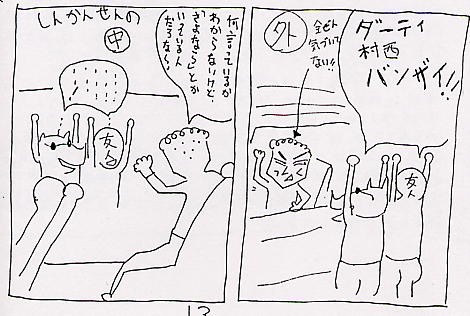 ダーティ
村西
バンザイ!!
外
全ぜん
気づいて
ない!!
友人
しんかんせんの
中
何言っているか
わからないけど、
「さよなら」とか
いっているん
友人